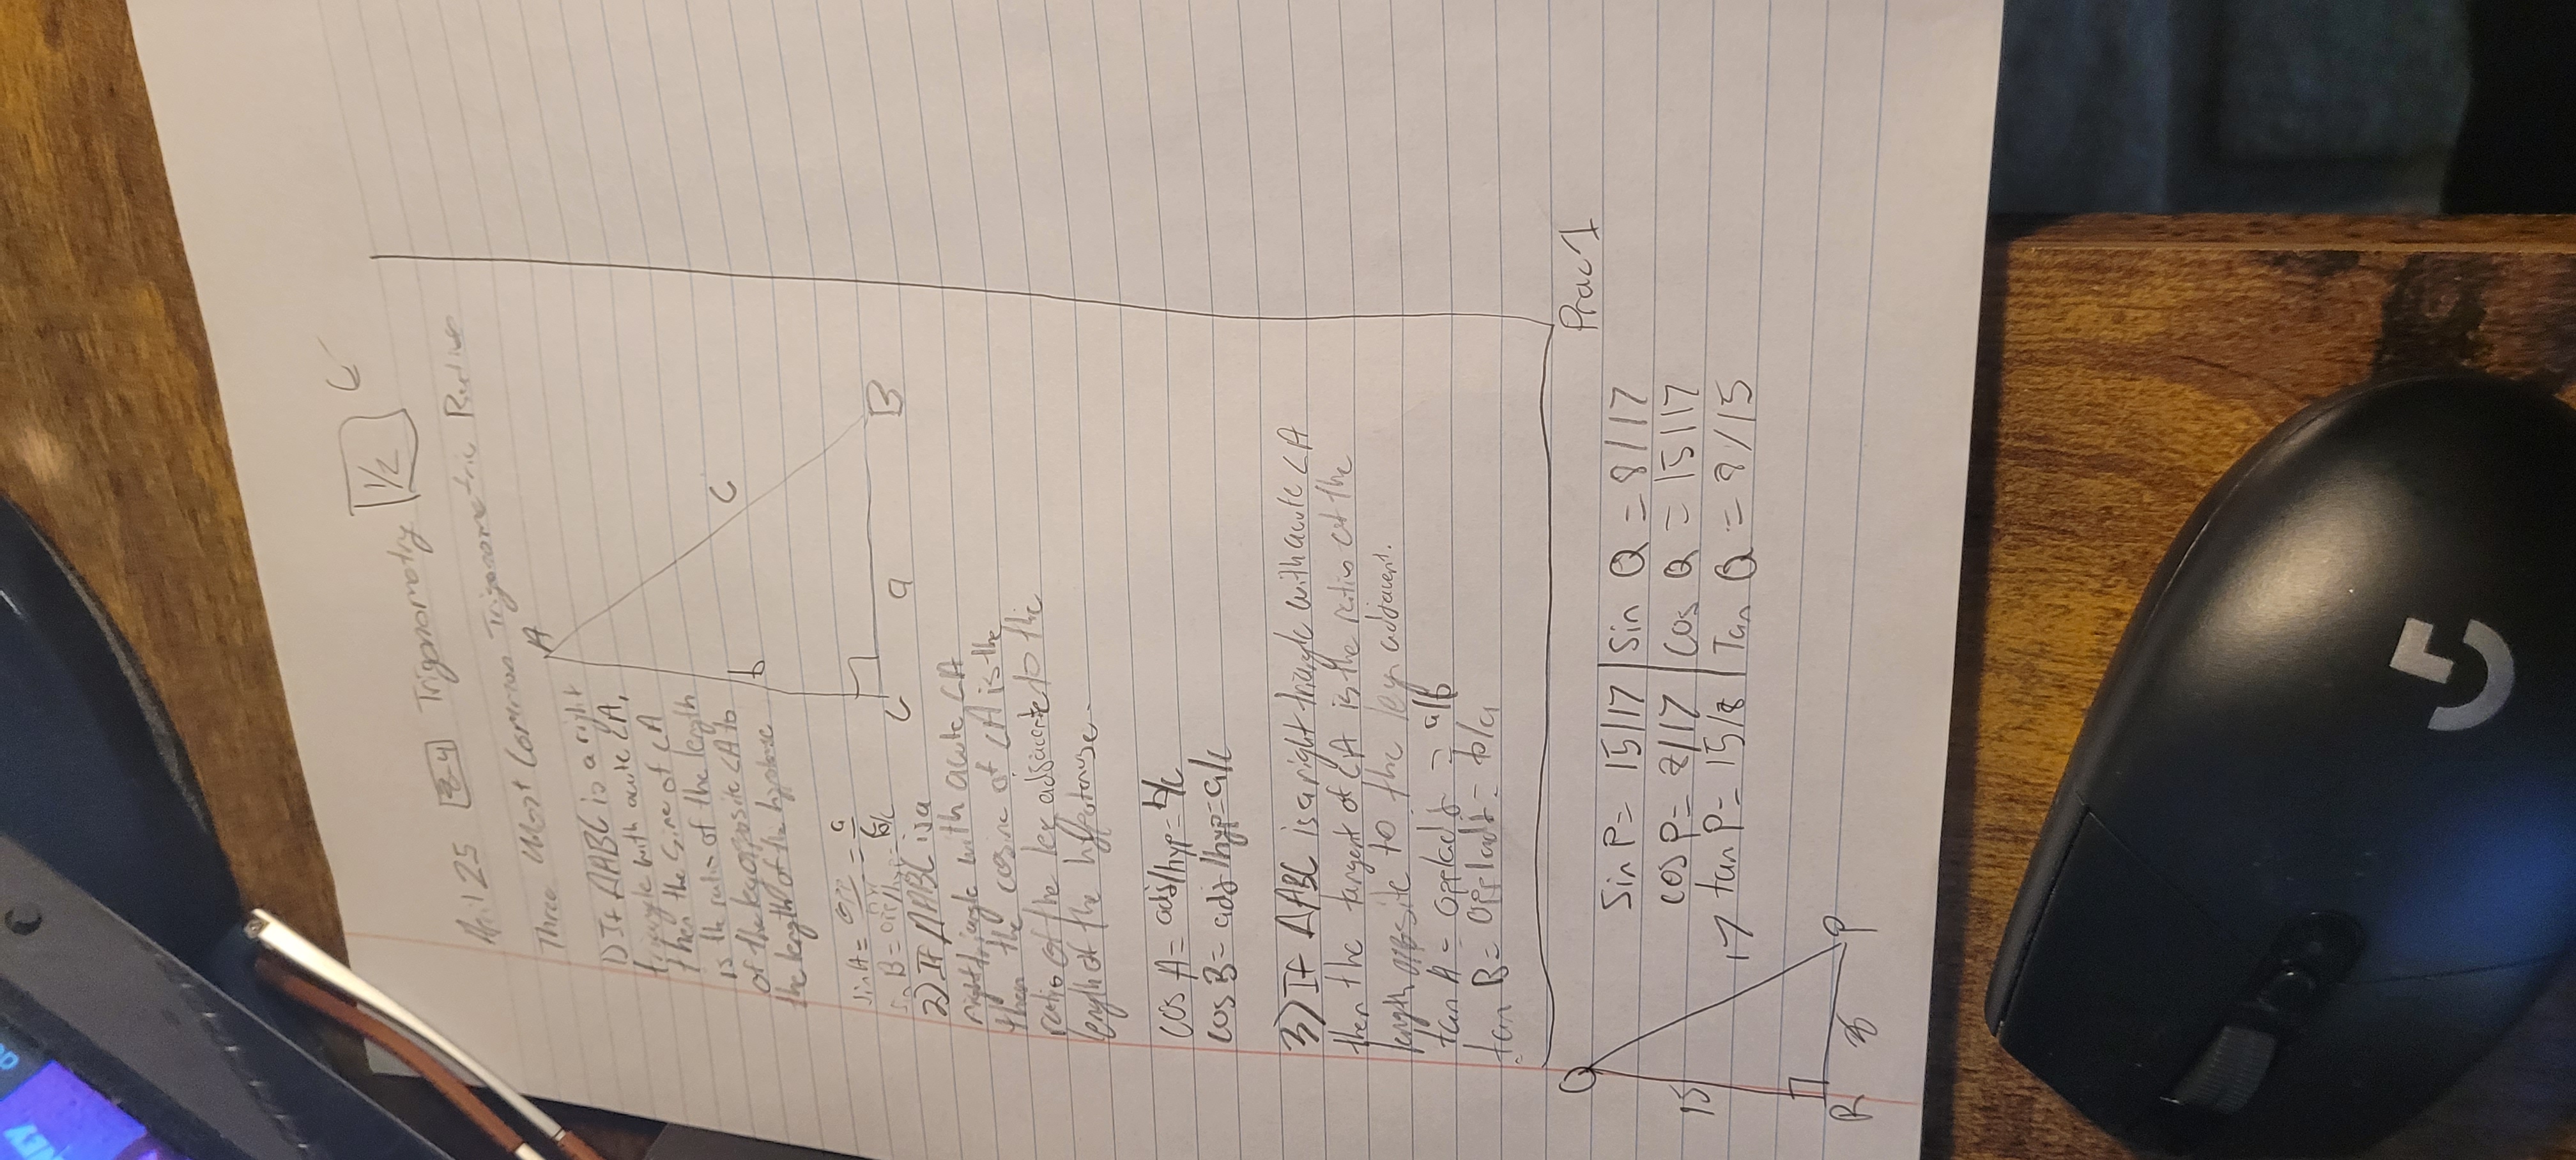 NEY
April 25 8-4 Trigonometry 1/2
Three Most Common Trigonometric Ratios
A
1) If △ABC is a right
triangle with acute ∠A,
then the Sine of ∠A
is the ratio of the length
of the leg opposite ∠A to
the length of the
b
c
sinA = opp/hyp = a/c
B = opp/hyp = b/c
C
a
B
2) If △ABC is a
right triangle with acute ∠A
then the cosine of ∠A is the
ratio of the leg adjacente to the
length of the hypotenuse.
cos A = adj/hyp = b/c
cos B = adj/hyp = a/c
3) If △ABC is a right triangle with acute ∠A
then the tangent of ∠A is the ratio of the
length opposite to the leg adjacent.
tan A = opp/adj = a/b
tan B = opp/adj = b/a
Prac 1
Q
Sin P = 15/17 | Sin Q = 8/17
15
cos P = 8/17 | Cos Q = 15/17
17
tan P = 15/8 | Tan Q = 8/15
R
8
P
G